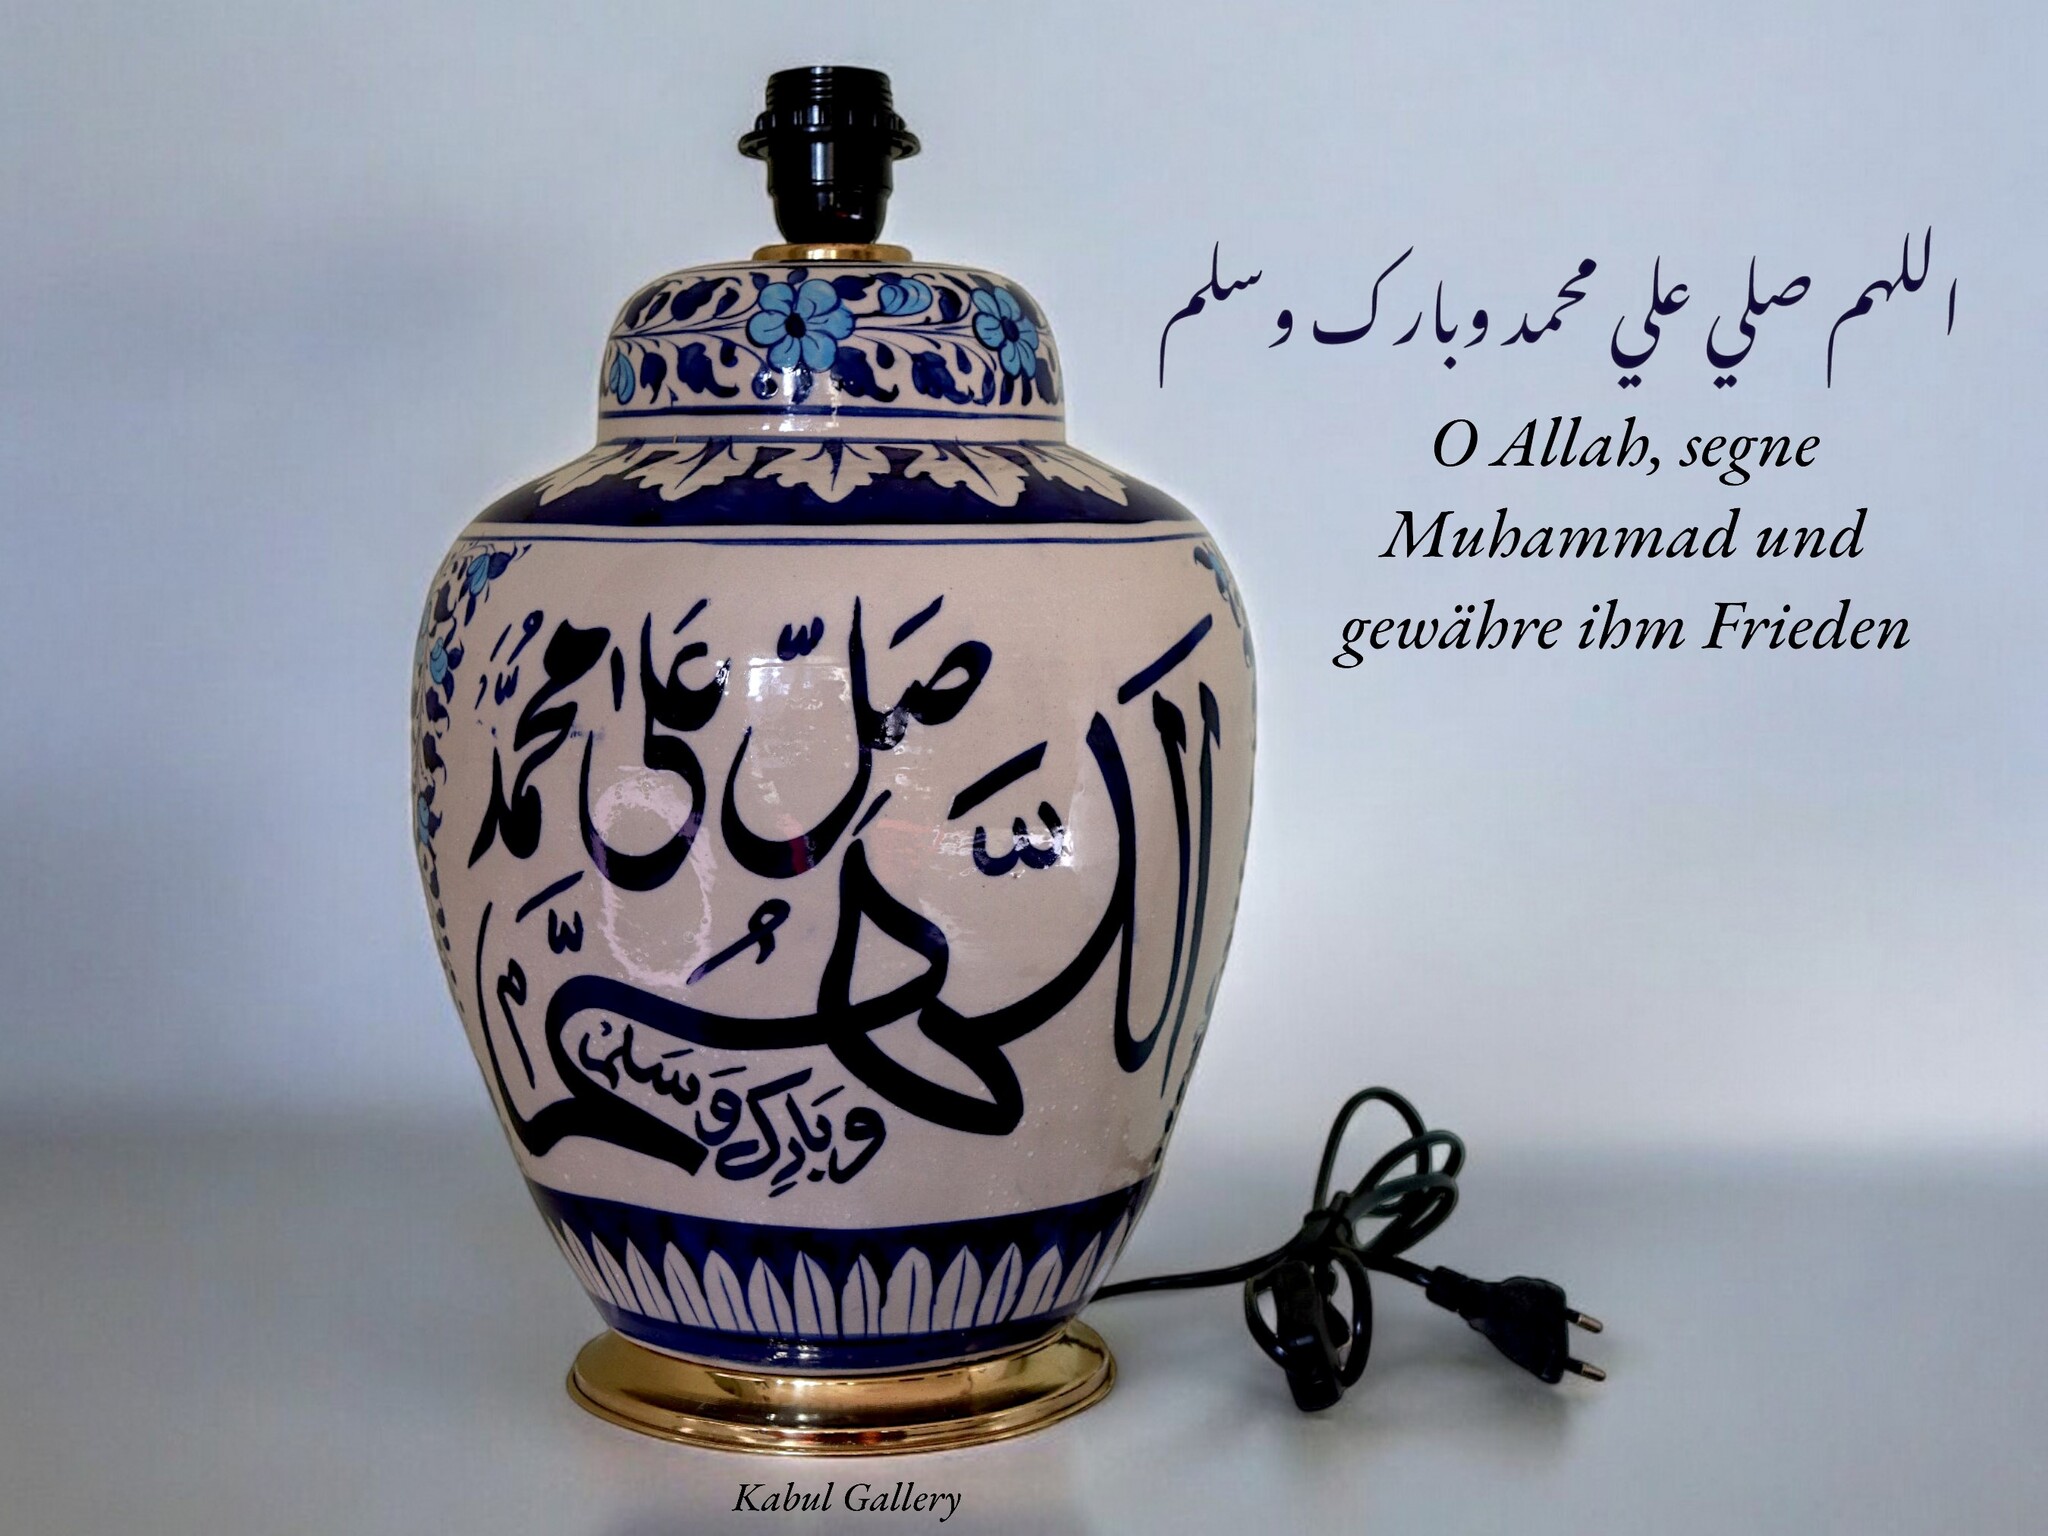 اللهم صلي علي محمد وبارك وسلم
O Allah, segne
Muhammad und
gewähre ihm Frieden
صَلِّ عَلى مُحَمَّد
اَللّٰهُمَّ
وبَارِك وَسَلم
Kabul Gallery